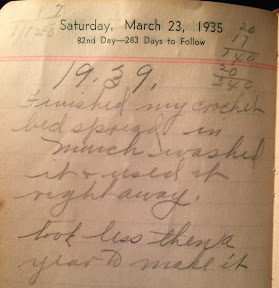 Saturday, March 23, 1935
82nd Day—283 Days to Follow
20
17
340
20
340
1939.
Finished my crochet
bed spread in
March washed
it & used it
right away.
took less then a
year to make it